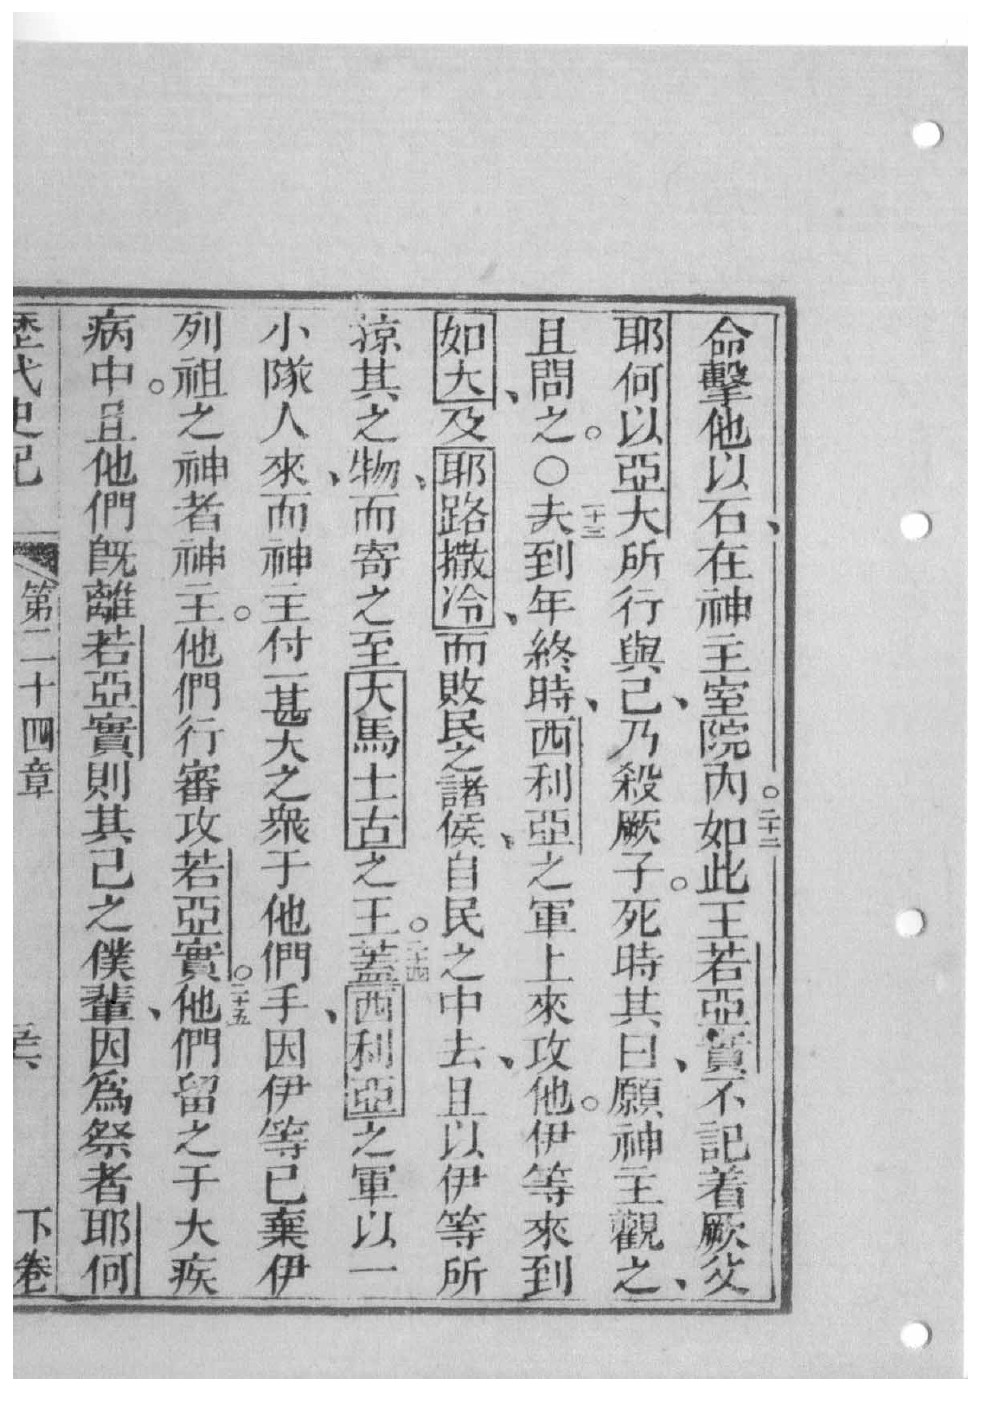 命擊他以石、在神主室院內。二十二如此王若亞實不記着厥父
耶何以亞大所行與己、乃殺厥子。死時其曰、願神主觀之、
且問之。〇二十三夫到年終時、西利亞之軍上來攻他。伊等來到
如大、及耶路撒冷、而敗民之諸侯、自民之中去、且以伊等所
掠其之物、而寄之至大馬士古之王。二十四蓋西利亞之軍以一
小隊人來、而神主付一甚大之衆于他們手、因伊等已棄伊
列祖之神者神主。他們行審攻若亞實。二十五他們留之于大疾
病中。且他們旣離若亞實、則其己之僕輩、因爲祭者耶何
歷代史記 第二十四章 下卷